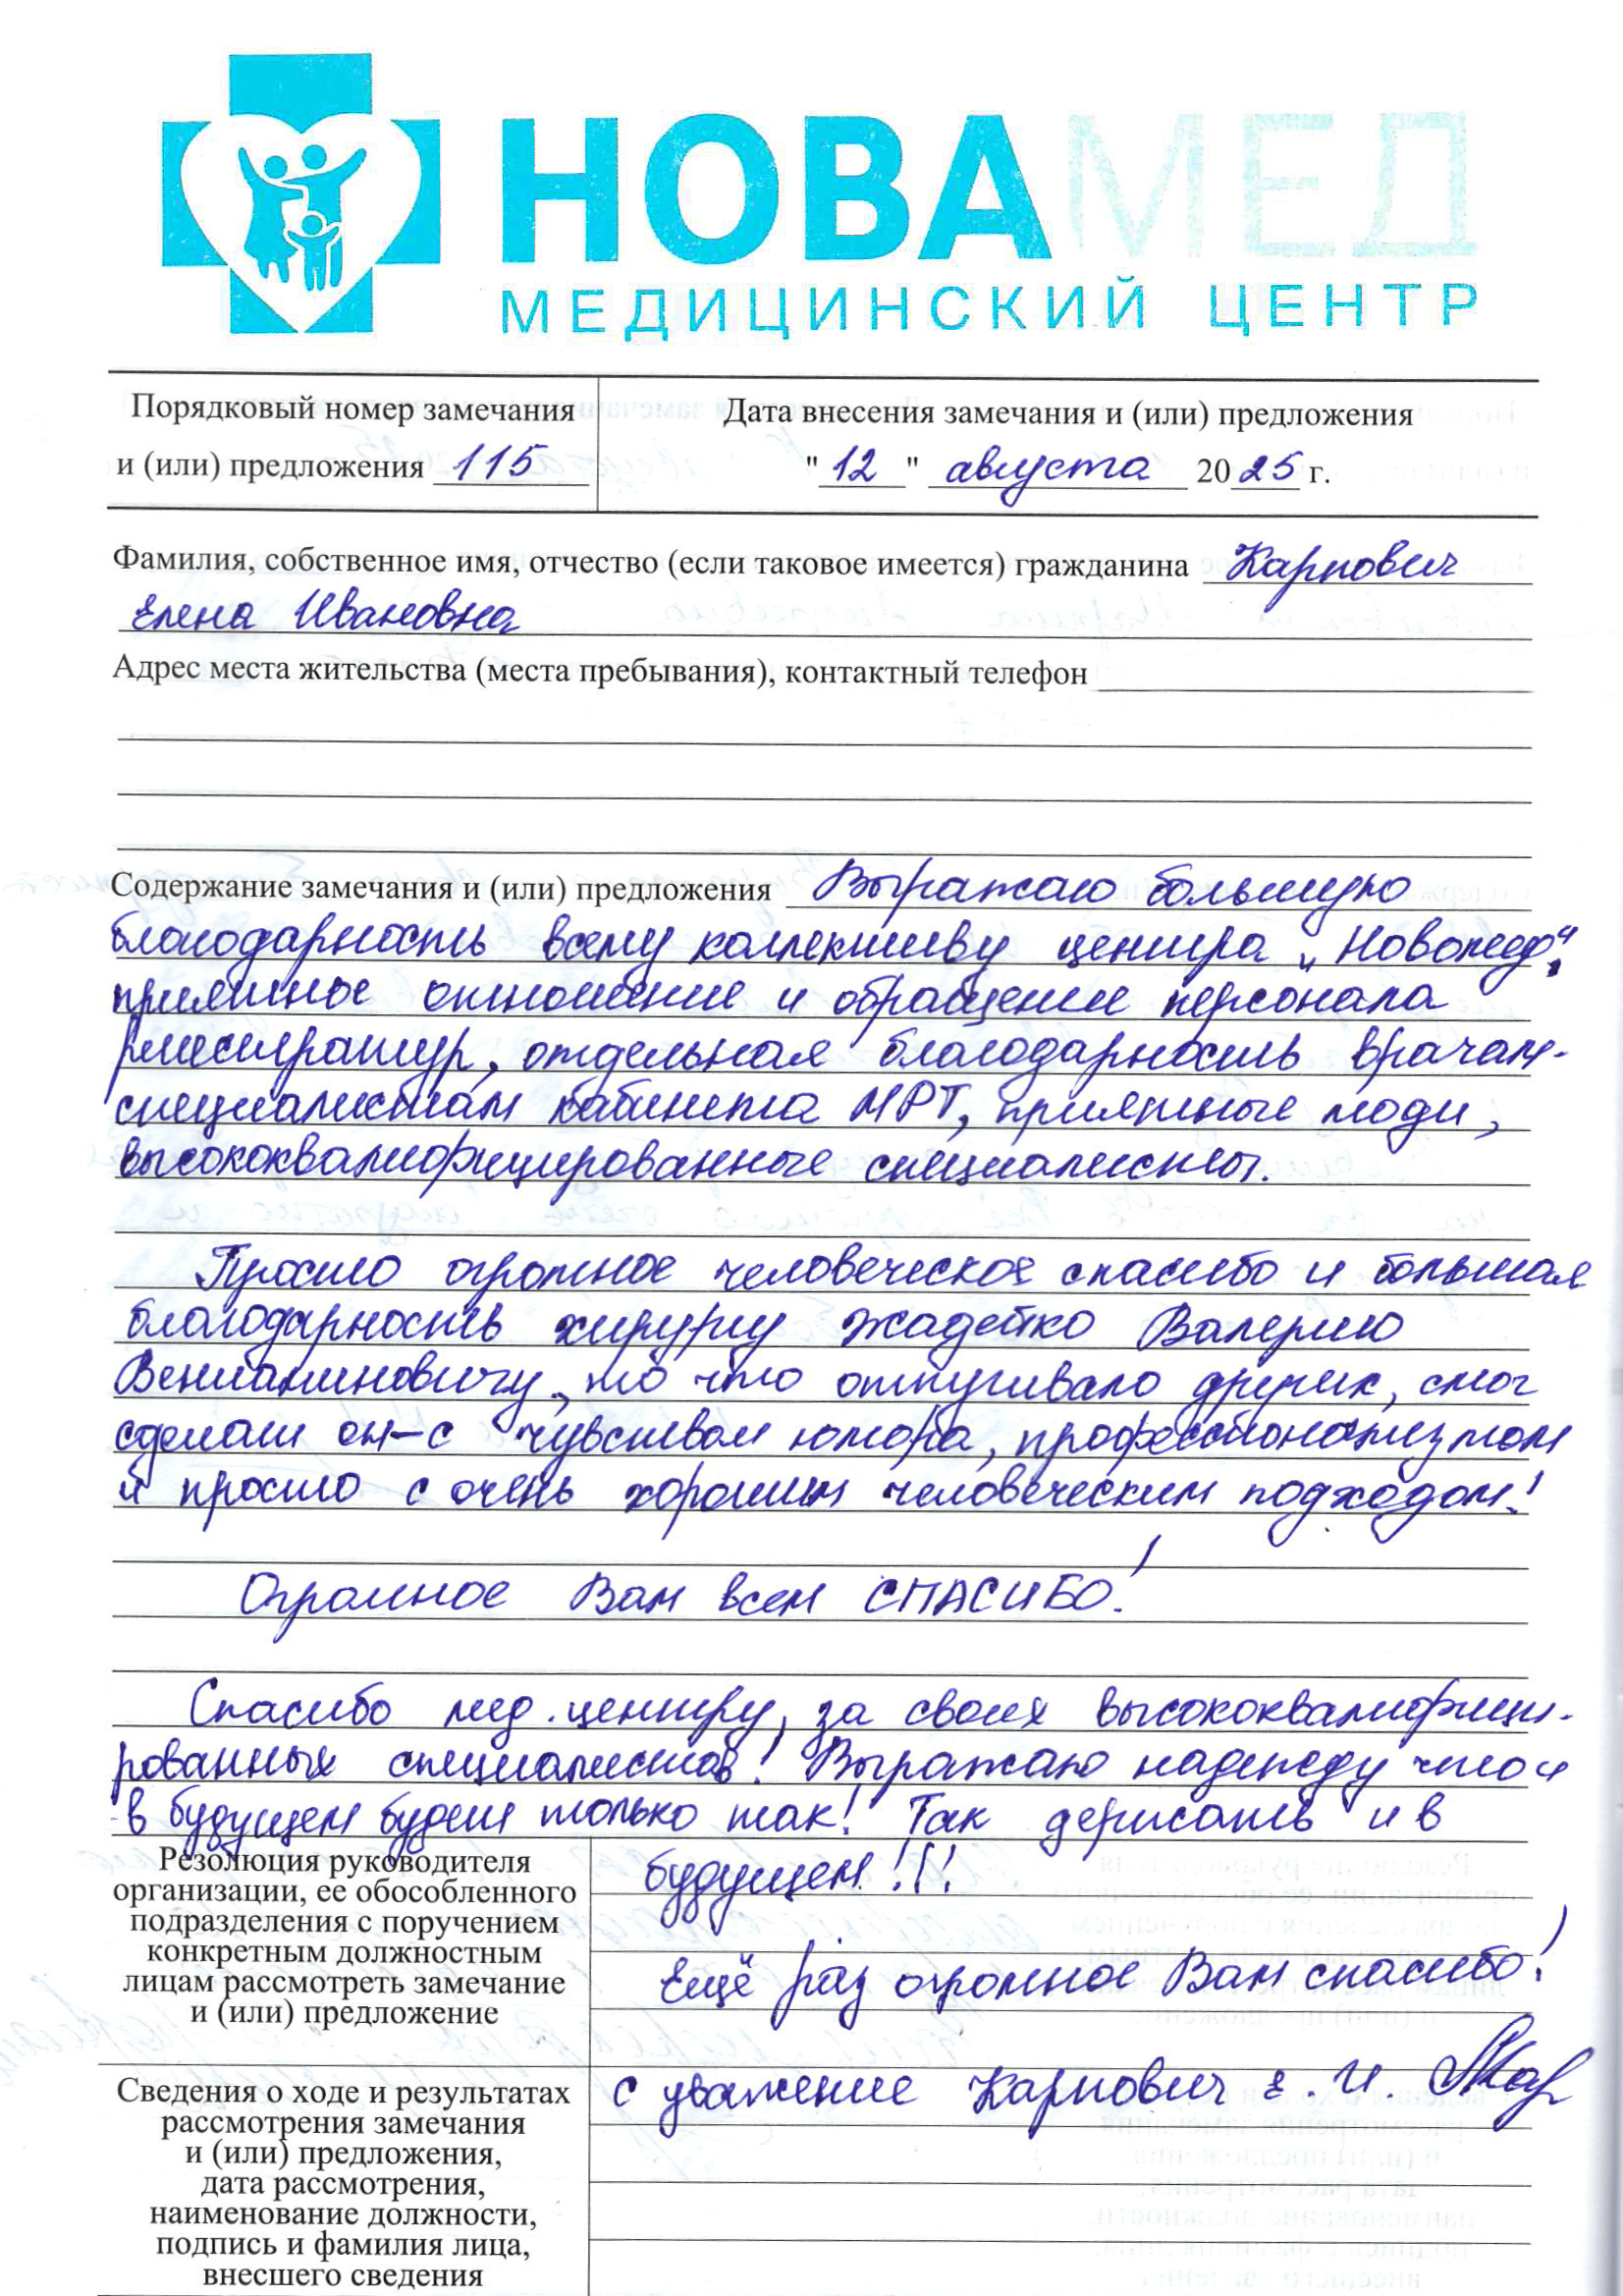 НОВАМЕД
МЕДИЦИНСКИЙ ЦЕНТР
Порядковый номер замечания
и (или) предложения 115
Дата внесения замечания и (или) предложения
"12" августа 2025 г.
Фамилия, собственное имя, отчество (если таковое имеется) гражданина Карпович
Елена Ивановна
Адрес места жительства (места пребывания), контактный телефон
Содержание замечания и (или) предложения Выражаю большую
благодарность всему коллективу центра „Новамед“,
приятное отношение и обращение персонала
регистратур, отдельная благодарность врачам-
специалистам кабинета МРТ, приятные люди,
высококвалифицированные специалисты.
Просто огромное человеческое спасибо и большая
благодарность хирургу Жадейко Валерию
Вениаминовичу, то что отпугивало других, смог
сделать он – с чувством юмора, профессионализмом
и просто с очень хорошим человеческим подходом!
Огромное Вам всем СПАСИБО!
Спасибо мед. центру, за своих высококвалифици-
рованных специалистов! Выражаю надежду что и
в будущем будет только так! Так держать и в
будущем!!!
Ещё раз огромное Вам спасибо!
с уважение Карпович Е. И.
Резолюция руководителя
организации, ее обособленного
подразделения с поручением
конкретным должностным
лицам рассмотреть замечание
и (или) предложение
Сведения о ходе и результатах
рассмотрения замечания
и (или) предложения,
дата рассмотрения,
наименование должности,
подпись и фамилия лица,
внесшего сведения